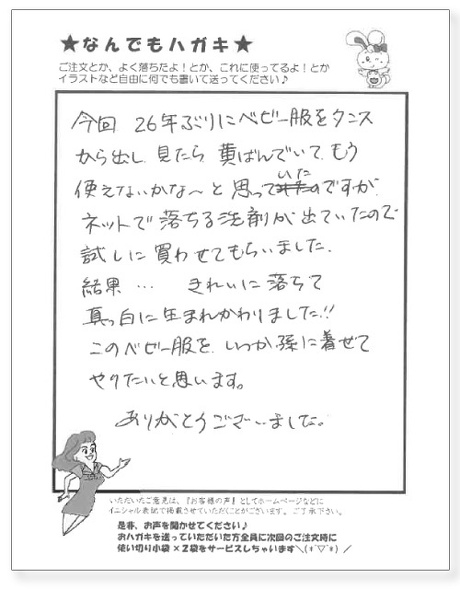 ★なんでもハガキ★
ご注文とか、よく落ちたよ!とか、これに使ってるよ!とか
イラストなど自由に何でも書いて送ってください♪
今回 26年ぶりにベビー服をタンス
から出し 見たら 黄ばんでいて、もう
使えないかな〜と 思っていたのですが、
ネットで 落ちる洗剤が 出ていたので
試しに 買わせてもらいました、
結果… きれいに 落ちて
真っ白に 生まれかわりました!!
このベビー服を、いつか 孫に着せて
やりたいと思います。
ありがとうございました。
いただいたご意見は、『お客様の声』としてホームページなどに
イニシャル表記で掲載させていただくことがございます。ご了承下さい。
是非、お声を聞かせてください♪
おハガキを送っていただいた方全員に次回のご注文時に
使い切り小袋×2袋をサービスしちゃいます＼(*´▽`*)／